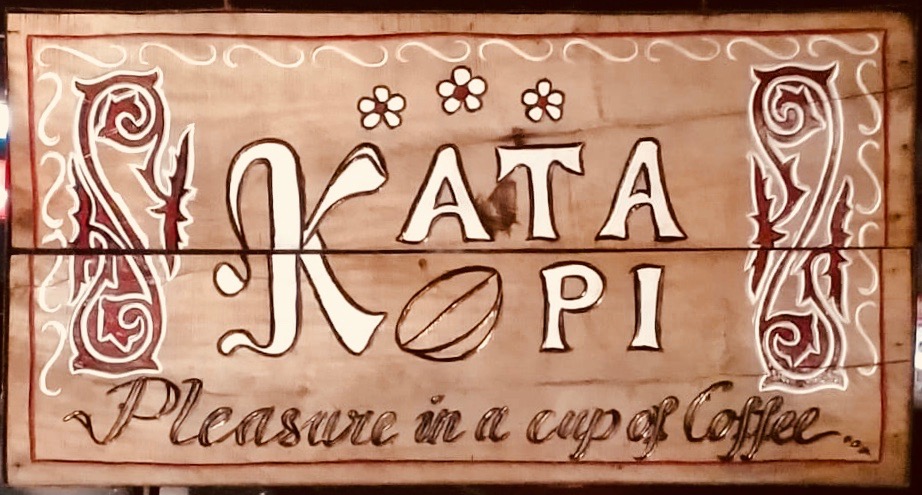 KATA
KOPI
Pleasure in a cup of Coffee...